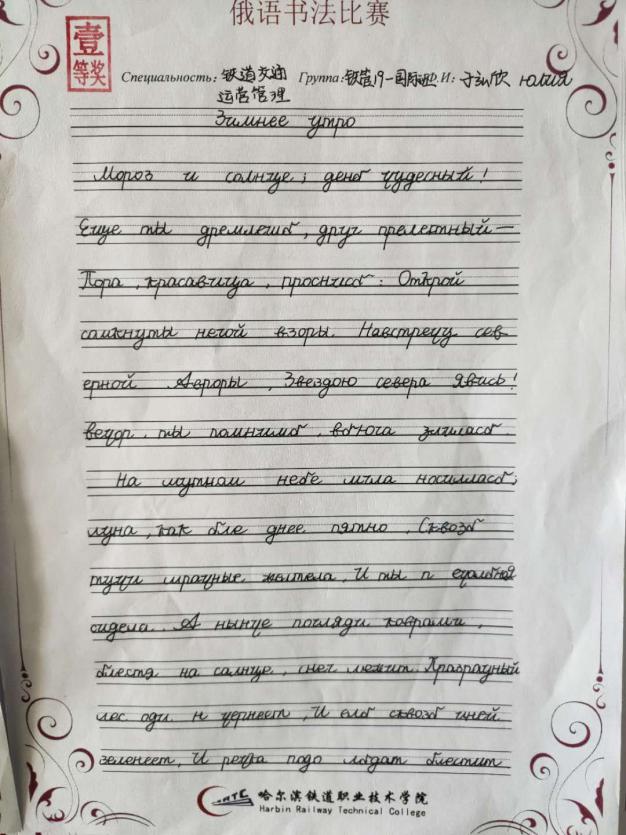 俄语书法比赛
壹
等奖
Специальность: 铁道交通 Группа: 铁管19-国际班 Ф.И: 于 欣 Юлия
运营管理
Зимнее утро
Мороз и солнце; день чудесный!
Еще ты дремлешь, друг прелестный—
Пора, красавица, проснись: Открой
сомкнуты негой взоры. Навстречу сев-
ерной Авроры, Звездою севера явись!
Вечор, ты помнишь, вьюга злилась.
На мутном небе мгла носиллась;
луна, как бле днее пятно, Сквозь
тучи мрачные желтела, И ты п ечальная
сидела. А нынче погляди коврами,
блестя на солнце, снег лежит. Празрачный
лес оди н чернеет, И ель сквозь иней
зеленеет, И речка подо льдат блестит
哈尔滨铁道职业技术学院
Harbin Railway Technical College